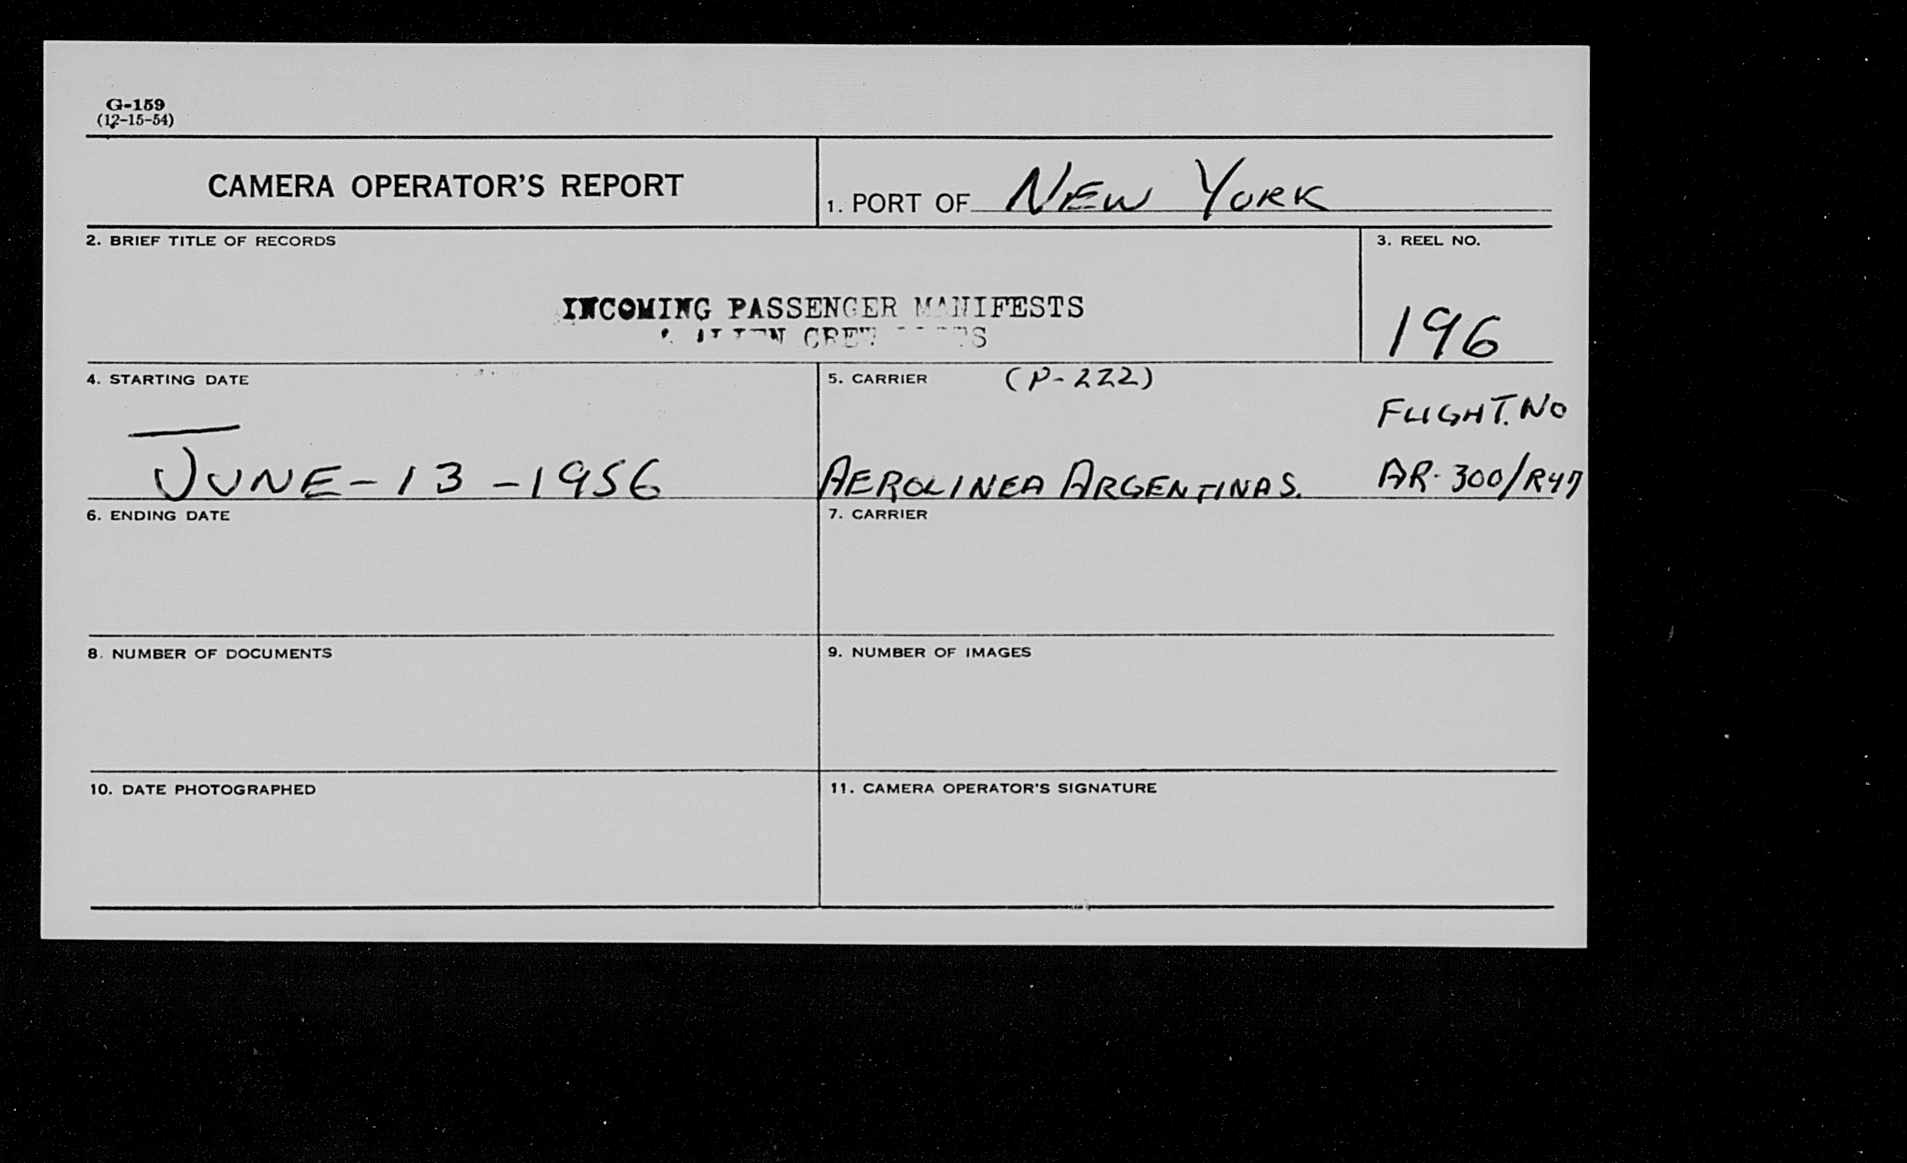 G-159
(12-15-54)
CAMERA OPERATOR'S REPORT
1. PORT OF NEW YORK
2. BRIEF TITLE OF RECORDS
3. REEL NO.
INCOMING PASSENGER MANIFESTS
CREW
196
4. STARTING DATE
5. CARRIER (P-222)
FLIGHT. NO
JUNE-13-1956
AEROLINEA ARGENTINAS. AR-300/R47
6. ENDING DATE
7. CARRIER
8. NUMBER OF DOCUMENTS
9. NUMBER OF IMAGES
10. DATE PHOTOGRAPHED
11. CAMERA OPERATOR'S SIGNATURE